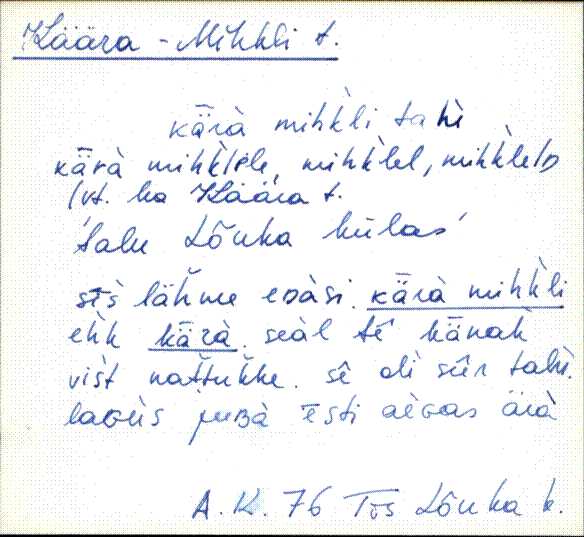 Käära - Mihkli t.
kǟrà mihk̀li tahì
kǟrà mihk̀lile, mihk̀lel, mihk̀lelᴅ
(vt. ka Käära t.
'talu Lõuka külas'
sīs̀ lähme eᴅàsi. kǟrà mihk̀li
ehk kǟrà. seàl tê känàk
vist nattukke. sê oli sûr talù.
laɢùs juʙà ēsti aèvas ärà
A. K. 76 Tõs Lõuka k.